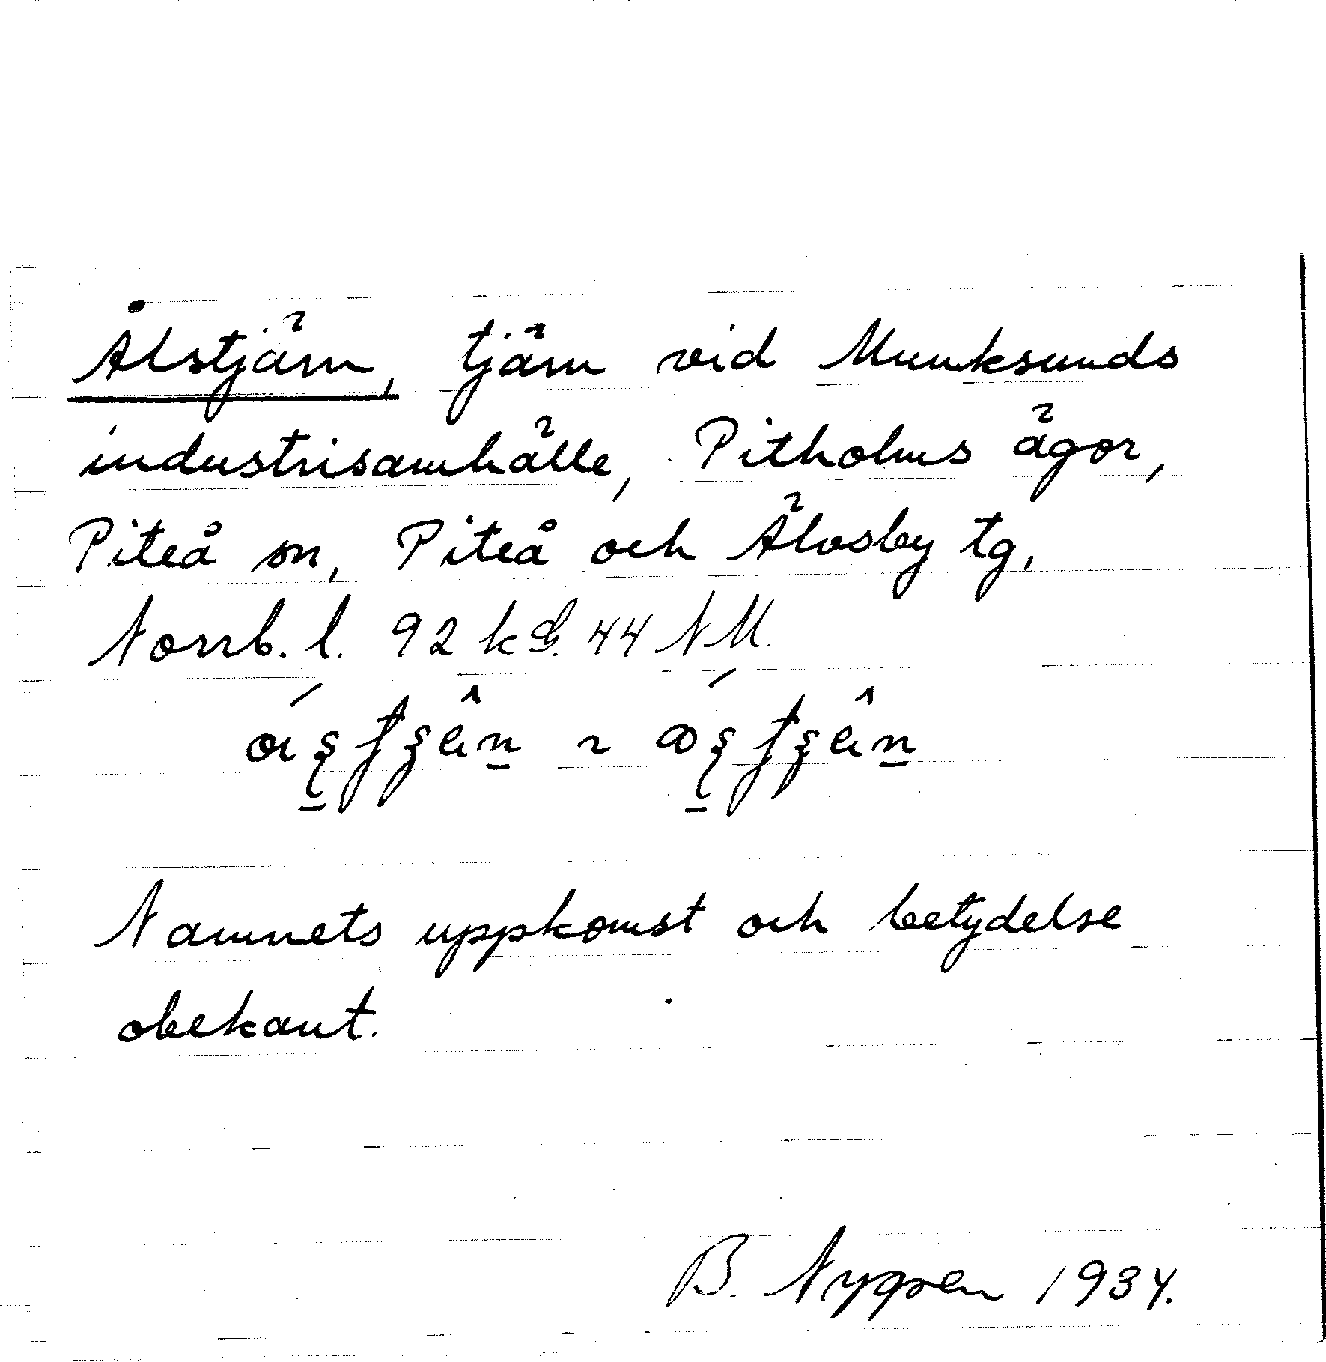 Ålstjärn, tjärn vid Munksunds
industrisamhälle, Pitholms ägor,
Piteå sn, Piteå och Älvsby tg,
Norrb. l. 92 k G. 44 NM.
Namnets uppkomst och betydelse
obekant.
B. Nygren 1934.